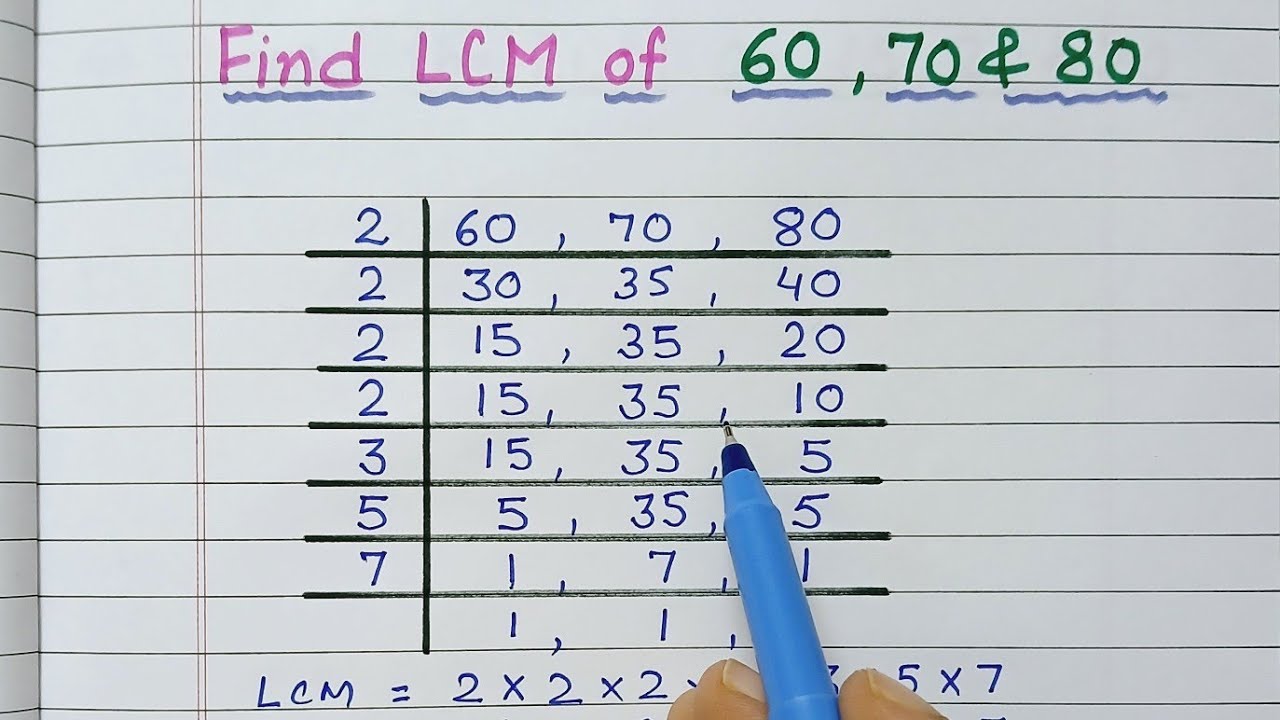 Find LCM of 60, 70 & 80
2 | 60, 70, 80
2 | 30, 35, 40
2 | 15, 35, 20
2 | 15, 35, 10
3 | 15, 35, 5
5 | 5, 35, 5
7 | 1, 7, 1
1, 1,
LCM = 2 × 2 × 2 × 5 × 7